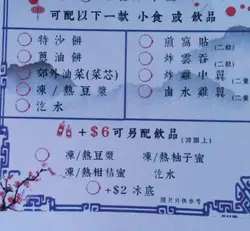 可配以下一款 小食 或 飲品
特沙餅
蔥油餅
郊外油菜(菜芯)
凍/熱豆漿
汔水
煎窩貼(二粒)
炸雲吞(二粒)
炸雞中翼
鹵水雞翼
+$6可另配飲品(請圈上)
凍/熱豆漿
凍/熱柚子蜜
凍/熱柑桔蜜
汔水
+$2冰底
圖片只供參考